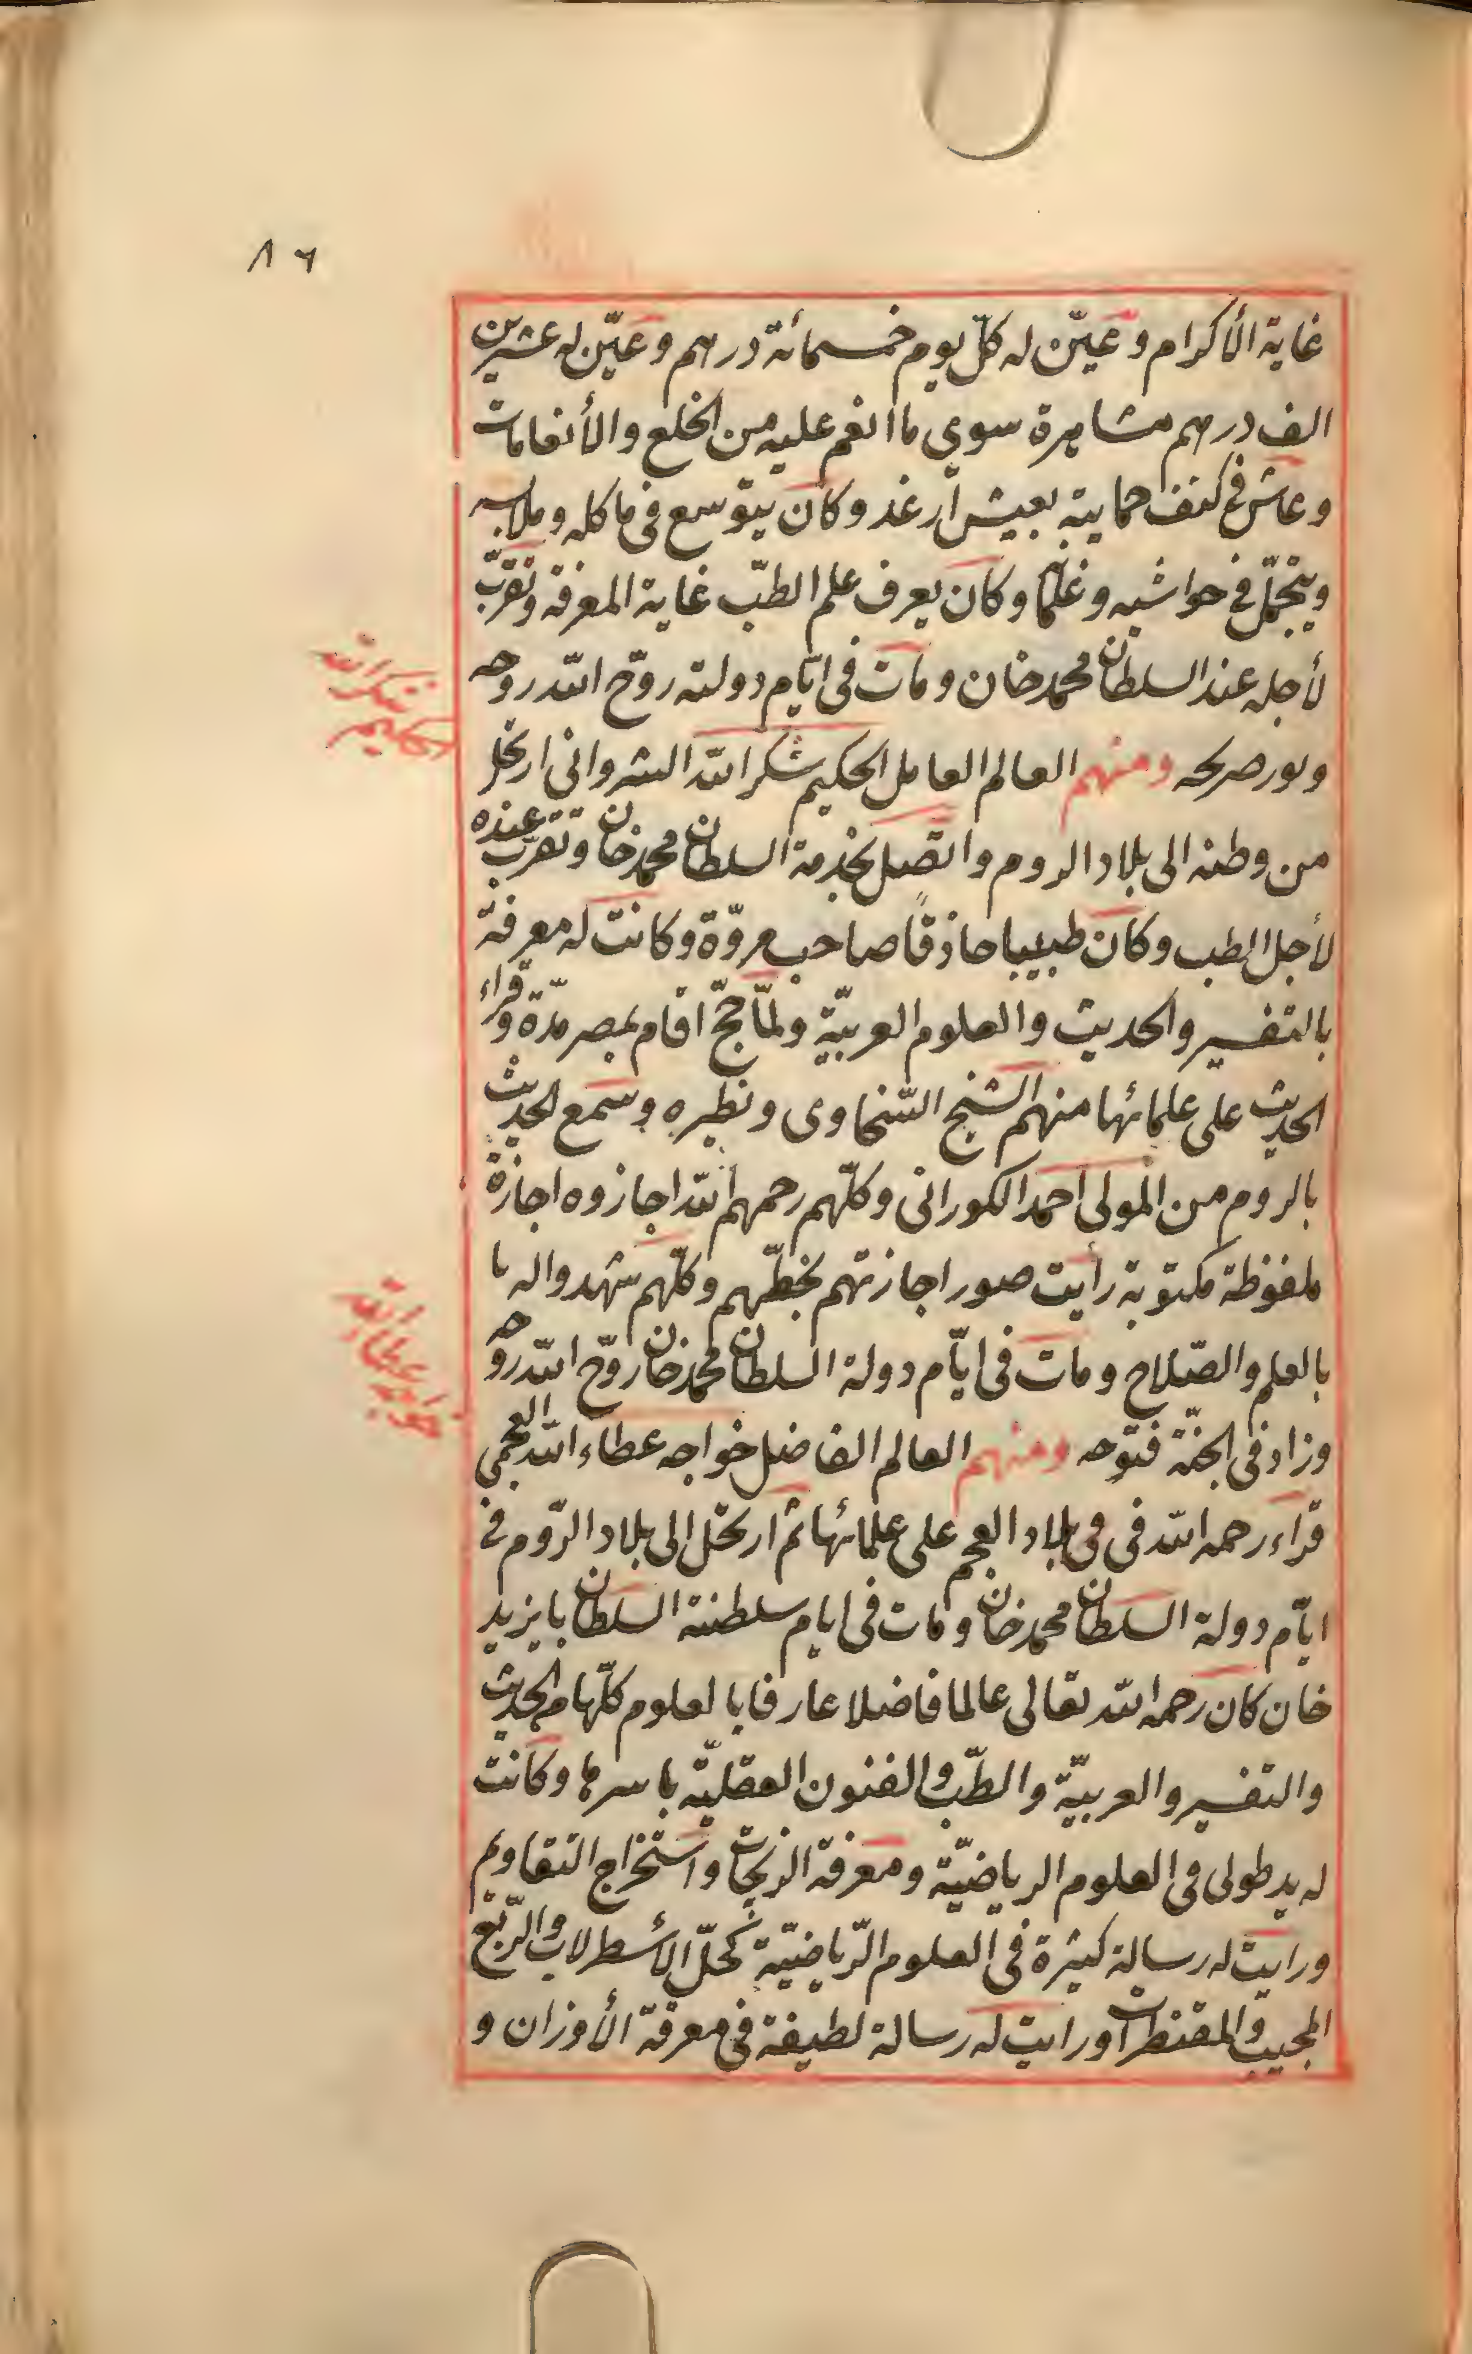 ٨٦
غاية الأكرام وعيّن له كلّ يوم خمسمائة درهم وعيّن له عشرين
الف درهم مشاهرة سوى ما انعم عليه من الخلع والأنعامات
وعاش في كنف حمايته بعيش ارغد وكان يتوسع في ماكله وملابسه
ويتجمّل في حواشيه وغلمانه وكان يعرف علم الطبّ غاية المعرفة وتقرّب
لأجله عند السلطان محمد خان ومات في ايّام دولته روّح الله روحه
ونور ضريحه ومنهم العالم العامل الحكيم شكر الله الشرواني ارتحل
شكر الله
الحكيم
من وطنه الى بلاد الروم واتّصل بخدمة السلطان محمد خان وتقرّب عنده
لأجل الطب وكان طبيبا حاذقًا صاحب مروّة وكانت له معرفة
بالتفسير والحديث والعلوم العربيّة ولمّا حجّ اقام بمصر مدّة وقراء
الحديث على علمائها منهم الشيخ السّخاوى ونظيره وسمع الحديث
بالروم من المولى احمد الكوراني وكلّهم رحمهم الله اجازوه اجازة
ملفوظة مكتوبة رأيت صور اجازتهم بخطّهم وكلّهم شهدوا له با
بالعلم والصّلاح ومات في ايّام دولة السلطان محمد خان روّح الله روحه
وزاد في الجنّة فتوحه ومنهم العالم الفاضل خواجه عطاء الله العجمي
قراء رحمه الله في في بلاد العجم على علمائها ثمّ ارتحل الى بلاد الرّوم في
ايّام دولة السلطان محمد خان ومات في ايام سلطنة السلطان بايزيد
خان كان رحمه الله تعالى عالما فاضلا عارفا بالعلوم كلّها من الحديث
والتفسير والعربيّة والطّب والفنون العقليّة باسرها وكانت
له يد طولى في العلوم الرياضيّة ومعرفة الزيجات واستخراج التقاويم
ورايت له رسالة كثيرة في العلوم الرّياضيّة كحلّ الأسطرلاب والرّبع
المجيب والمقنطرات ورايت له رسالة لطيفة في معرفة الأوزان و